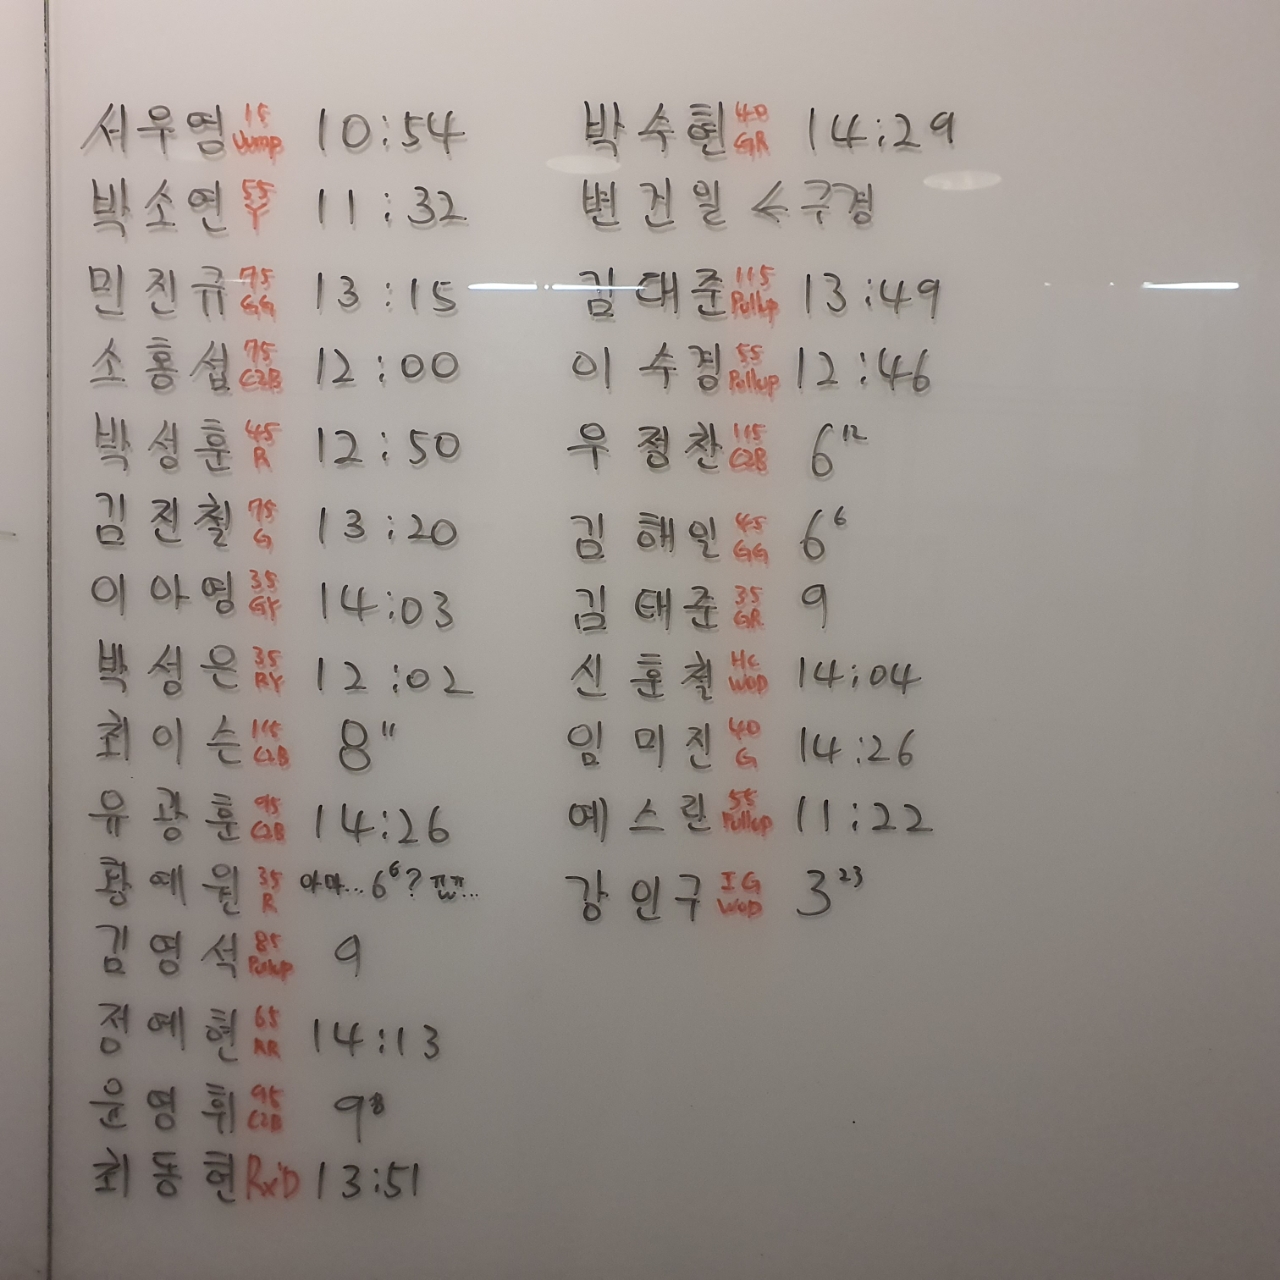 서우영 15 Jump 10:54
박소연 55 Y 11:32
민진규 75 GG 13:15
소홍섭 75 C2B 12:00
박성훈 45 R 12:50
김진철 75 G 13:20
이아영 35 GY 14:03
박성은 35 RY 12:02
최이슨 115 C2B 8 11
유광훈 95 C2B 14:26
황예원 35 R 아마...6 6?
김영석 85 Pullup 9
정예현 65 RR 14:13
윤영휘 95 C2B 9
최동현 Rx'D 13:51
박수현 40 GR 14:29
변건일 < 구경
김태준 115 Pullup 13:49
이수경 55 Pullup 12:46
우정찬 115 C2B 6 12
김해일 45 GG 6 6
김태준 35 GR 9
신훈철 Hc WOD 14:04
임미진 40 G 14:26
예스린 55 Pullup 11:22
강인구 IG WOD 3 23